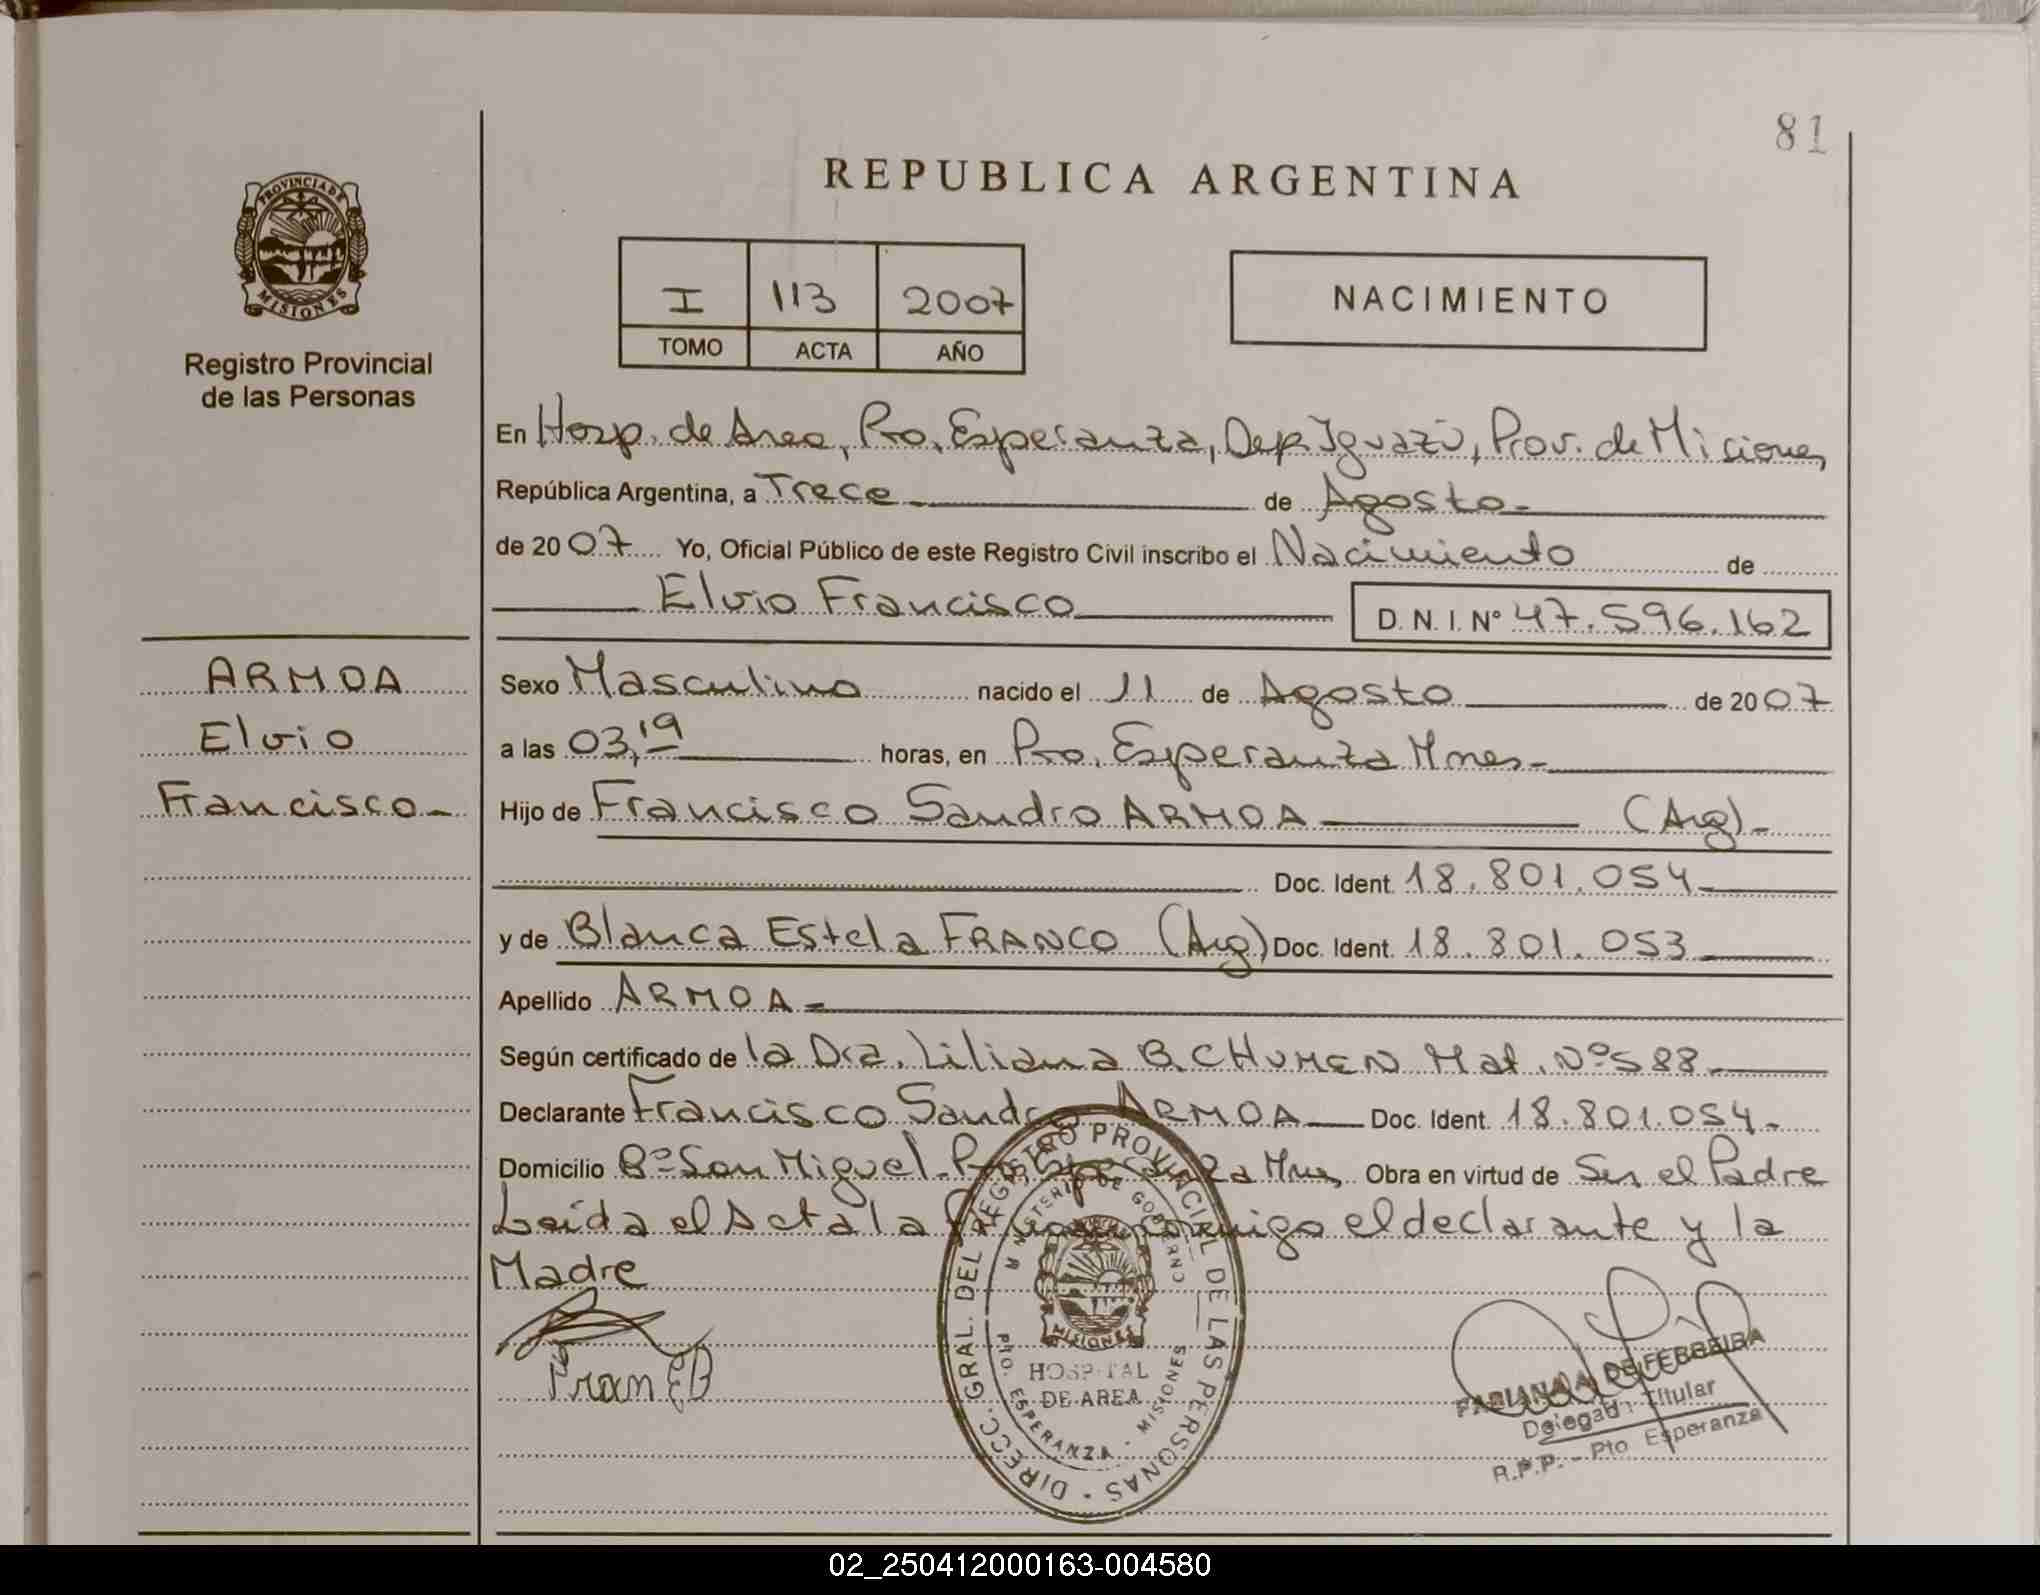 81
REPUBLICA ARGENTINA
PROVINCIA DE
MISIONES
Registro Provincial
de las Personas
I 113 2007
TOMO ACTA AÑO
NACIMIENTO
En Hosp. de Area, Pto. Esperanza, Dep. Iguazú, Prov. de Misiones
República Argentina, a Trece de Agosto
de 2007 Yo, Oficial Público de este Registro Civil inscribo el Nacimiento de
Elvio Francisco D.N.I. Nº 47.596.162
ARMOA
Elvio
Francisco
Sexo Masculino nacido el 11 de Agosto de 2007
a las 03,19 horas, en Pto. Esperanza Mnes
Hijo de Francisco Sandro ARMOA (Arg)
Doc. Ident. 18.801.054
y de Blanca Estela FRANCO (Arg) Doc. Ident. 18.801.053
Apellido ARMOA
Según certificado de la Dra. Liliana B. CHUMEN Mat. Nº 588
Declarante Francisco Sandro ARMOA Doc. Ident. 18.801.054
Domicilio Bº San Miguel Pto. Esperanza Mnes Obra en virtud de Ser el Padre
Leída el Acta la firman conmigo el declarante y la
Madre
Fran EB
DIRECC. GRAL. DEL REGISTRO PROVINCIAL DE LAS PERSONAS
MINISTERIO DE GOBIERNO
MISIONES
HOSPITAL
DE AREA
PTO. ESPERANZA - MISIONES
FABIANA A. DE FERREIRA
Delegada Titular
R.P.P. - Pto Esperanza
02_250412000163-004580